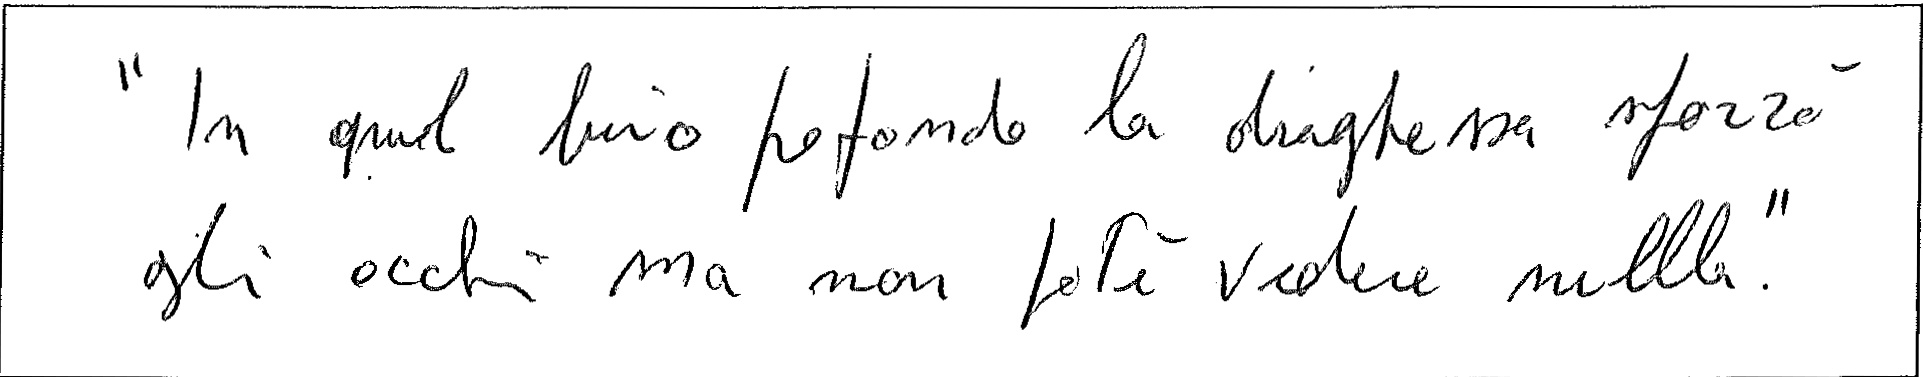 "In quel buio profondo la draghessa sforzò
gli occhi ma non poté vedere nulla."